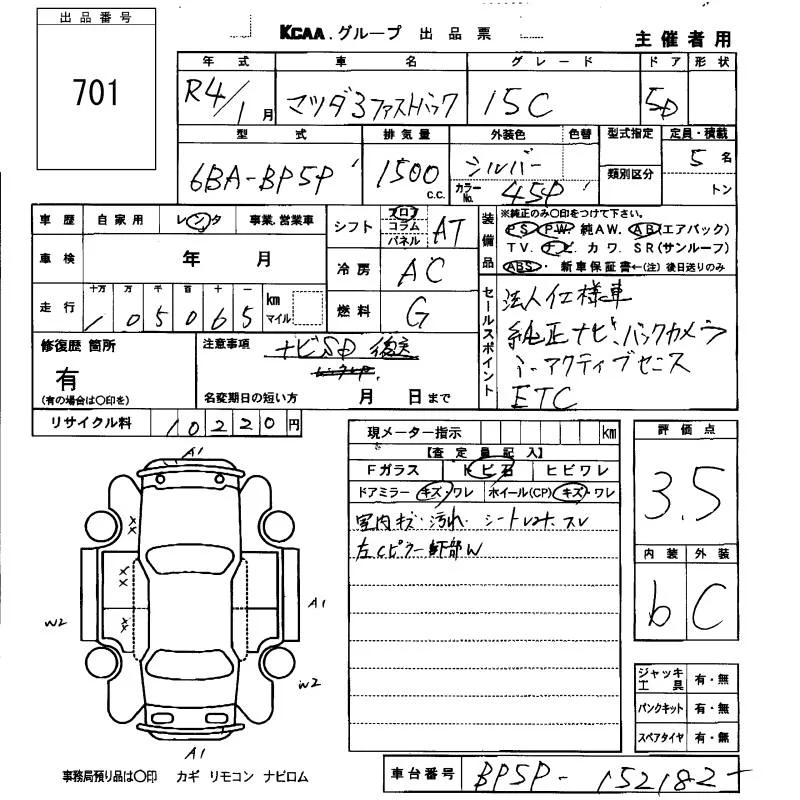 出品番号
701
KCAA.グループ 出品票
主催者用
年式 車名 グレード ドア 形状
R4/1月 マツダ3ファストバック 15C 5D
型式 排気量 外装色 色替 型式指定 定員・積載
6BA-BP5P 1500 C.C. シルバー 5名
カラーNo. 45P 類別区分 トン
車歴 自家用 レンタ 事業.営業車
シフト フロア コラム パネル AT
装備品 ※純正のみ○印をつけて下さい。
PS PW 純AW. AB(エアバック)
TV. ナビ カワ. SR(サンルーフ)
ABS・ 新車保証書←(注)後日送りのみ
車検 年 月
冷房 AC
走行 十万 万 千 百 十 一
105065 km マイル
燃料 G
セールスポイント
法人仕様車
純正ナビ.バックカメラ
アクティブセンス
ETC
修復歴 箇所
有
(有の場合は○印を)
注意事項 ナビSD 後送
名変期日の短い方 月 日まで
リサイクル料 10220円
現メーター指示 km
【査定員記入】
Fガラス トビ石 ヒビワレ
ドアミラー キズ・ワレ ホイール(CP) キズ・ワレ
室内キズ・汚れ. シート スレ
左Cピラー下部W
評価点
3.5
内装 外装
b C
A1
XX
XX
XX
A1
W2
W2
A1
ジャッキ工具 有・無
パンクキット 有・無
スペアタイヤ 有・無
事務局預り品は○印 カギ リモコン ナビロム
車台番号 BP5P-152182